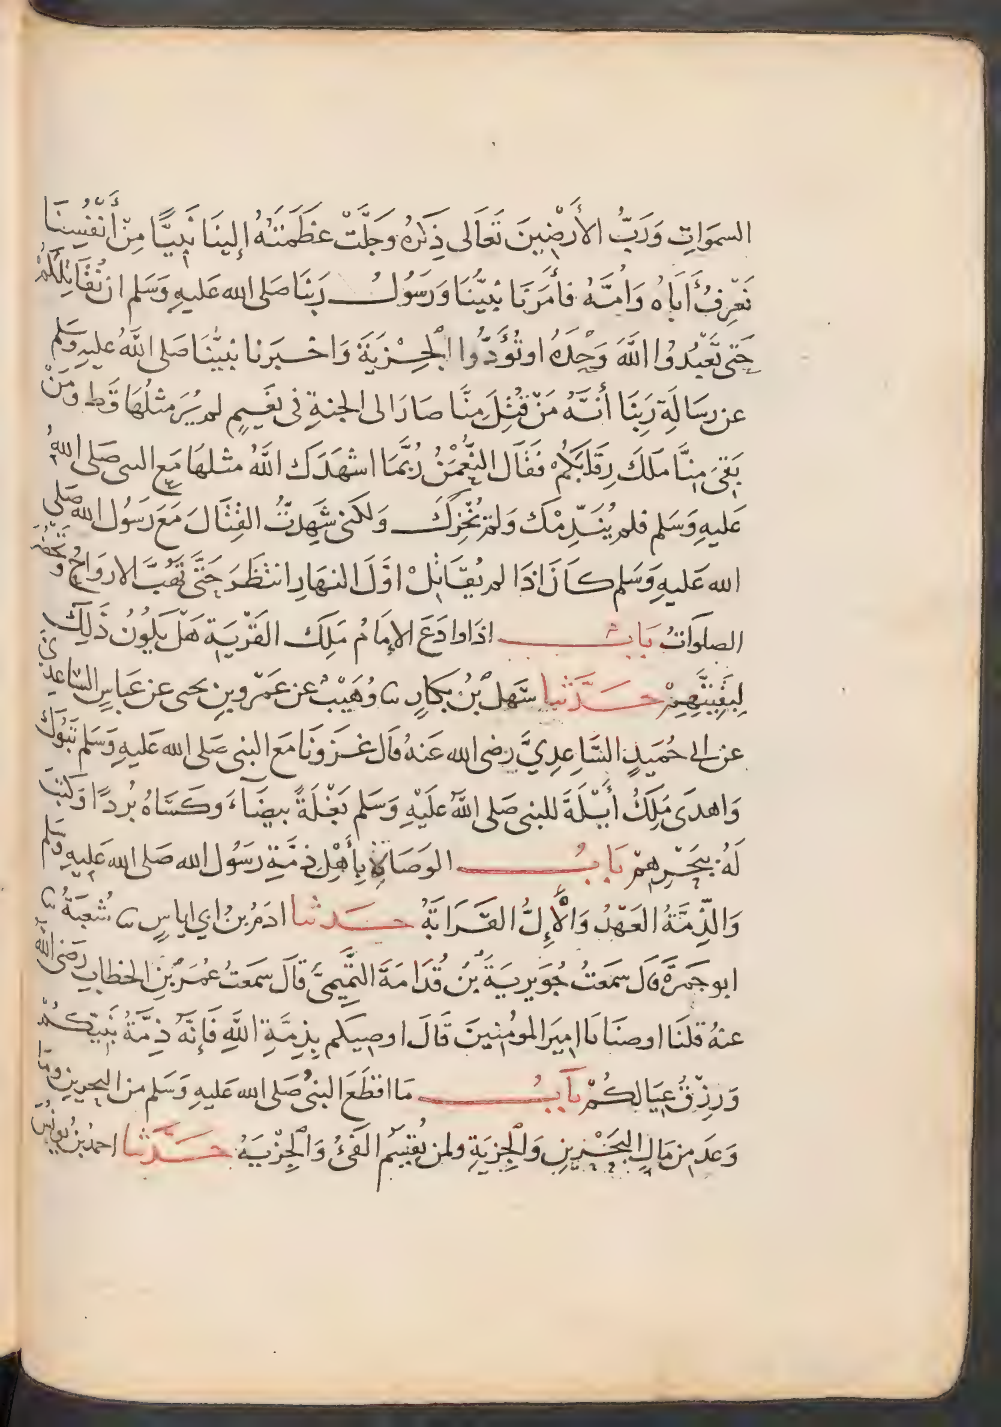 السموَاتِ وَرَبُّ الأَرْضِينَ تَعَالَى ذِكْرُهُ وَجَلَّتْ عَظَمَتُهُ إلينَا نَبِيًّا مِنْ أَنْفُسِنَا
نَعْرِفُ أَبَاهُ وَأُمَّهُ فأَمَرَنَا نَبِيُّنَا وَرَسُولُ رَبِّنَا صَلى الله عَليهِ وَسَلم ان نُقَاتِلَكُمْ
حَتى تَعْبُدُوا اللَّهَ وَحْدَهُ اوتُؤَدُّوا الْجِزْيَةَ وَاخْبَرنا نبيُّنَا صَلى اللَّهُ عليهِ وَسَلم
عن رسَالَةِ رَبِّنَا أَنَّهُ مَنْ قُتِلَ مِنَّا صَارَ الى الجنةِ فى نَعِيمٍ لم يُرَ مثلُهَا قَط وَمَنْ
بَقىَ مِنَّا مَلَكَ رِقَابَكُمْ فَقَال النُّعْمٰنُ رُبَّمَا اشهَدَكَ اللَّهُ مثلهَا مَعَ النبى صَلى اللهُ
عَليهِ وَسَلم فلم يُنَدِّمْكَ وَلمْ يُخْزِكَ وَلكنى شَهِدتُّ القِتَالَ مَعَ رَسُول الله صَلى
الله عَليهِ وَسَلم كانَ اذَا لم يُقَاتِلْ اوَّلَ النهَارِ انتظَرَ حَتَّى تَهُبَّ الارْوَاحُ وَتَحْضُرَ
الصلوَاتُ بَابٌ اذَا وَادَعَ الإمَامُ مَلِكَ القَرْيَةِ هَل يَكُونُ ذَلِكَ
لِبَقِيَّتِهِمْ حَدَّثنا سَهل بْنُ بَكَارٍ نا وُهَيْبٌ عن عَمْرِو بنِ يحيى عن عَباسٍ السَّاعِدِيّ
عن ابى حُمَيدٍ السَّاعِدِيَّ رضى الله عَنهُ قَال غَزَونَا مَعَ النبى صَلى الله عَليهِ وَسَلم تَبُوكَ
وَاهدَى مَلِكُ أَيْلَةَ للنبى صَلى اللَّهُ عَلَيْهِ وَسَلم بَغْلَةً بيضَاءَ وكَسَاهُ بُردًا وَكَتَبَ
لَهُ بِبَحْرِهِمْ بَابُ الوَصَاةِ بِأَهْلِ ذِمَّةِ رَسُول الله صَلى الله عَليهِ وَسَلم
وَالذِّمَّةُ العَهْدُ وَالْإِلُّ القَرَابَةُ حَدثنا ادَمُ بنُ ابى اياسٍ نا شُعبَةُ نا
ابو جَمرَةَ قَال سَمعتُ جُوَيريَةَ بْنَ قُدَامَةَ التَّمِيمىَّ قَالَ سَمعتُ عُمَرَ بْنَ الخطابِ رَضى اللَّهُ
عنهُ قلنَا اوصنَا يَا اميَر المومُنينَ قَالَ اوصِيكم بِذِمَّةِ اللَّهِ فَإِنَّهُ ذِمَّةُ نَبِيِّكُمْ
وَرِزْقُ عِيَالكُمْ بَابُ مَا اقطَعَ النبىُّ صَلى الله عَليهِ وَسَلم من البحرينِ وَمَا
وَعَدَ مِن مَالِ البَحْرَينِ وَالْجِزيَةِ ولمن يُقْسَمُ الفَىْءُ وَالْجِزْيَةُ حَدَّثنا احمَدُ بنُ يونُسَ